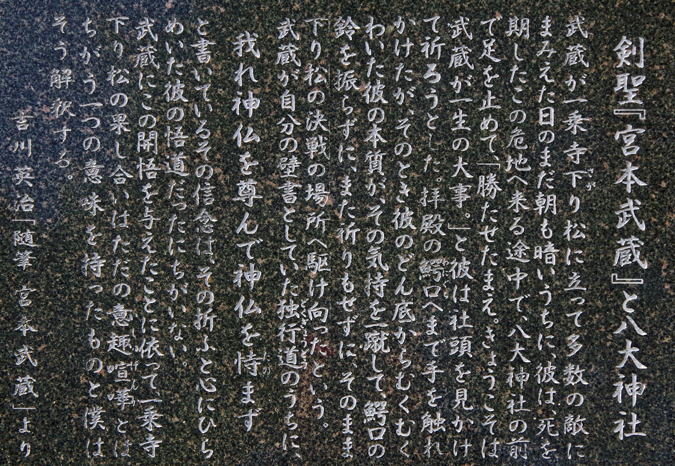 剣聖『宮本武蔵』と八大神社
武蔵が一乗寺下り松に立って多数の敵に
まみえた日のまだ朝も暗いうちに、彼は、死を
期したこの危地へ来る途中で、八大神社の前
で足を止めて、「勝たせたまえ。きょうこそは
武蔵が一生の大事。」と彼は社頭を見かけ
て祈ろうとした。拝殿の鰐口へまで手を触れ
かけたが、そのとき彼のどん底からむくむく
わいた彼の本質が、その気持を一蹴して、鰐口の
鈴を振らずに、また祈りもせずに、そのまま
下り松の決戦の場所へ駆け向ったという。
武蔵が自分の壁書としていた独行道のうちに、
我れ神仏を尊んで神仏を恃まず
と書いている、その信念は、その折ふと心にひら
めいた彼の悟道だったにちがいない。
武蔵にこの開悟を与えたことに依って一乗寺
下り松の果し合いはただの意趣喧嘩とは
ちがう一つの意味を持ったものと僕は
そう解釈する。
吉川英治「随筆 宮本武蔵」より